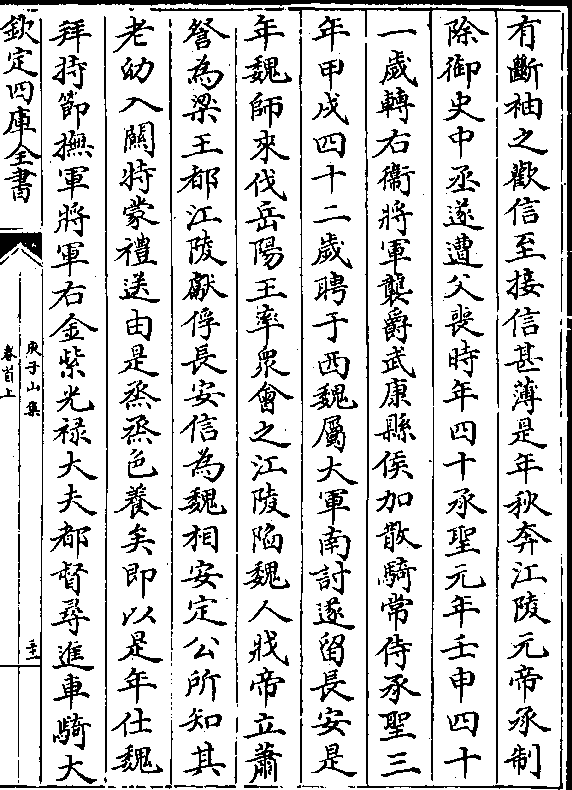 有斷袖之歡信至接信甚薄是年秋奔江陵元帝承制
除御史中丞遂遭父喪時年四十承聖元年壬申四十
一歲轉右衞將軍襲爵武康縣侯加散騎常侍承聖三
年甲戌四十二歲聘于西魏屬大軍南討遂留長安是
年魏師來伐岳陽王率衆會之江陵陷魏人戕帝立蕭
詧為梁王都江陵獻俘長安信為魏相安定公所知其
老幼入關將蒙禮送由是烝烝色養矣即以是年仕魏
拜持節撫軍將軍右金紫光禄大夫都督尋進車騎大
欽定四庫全書
庾子山集
卷首上